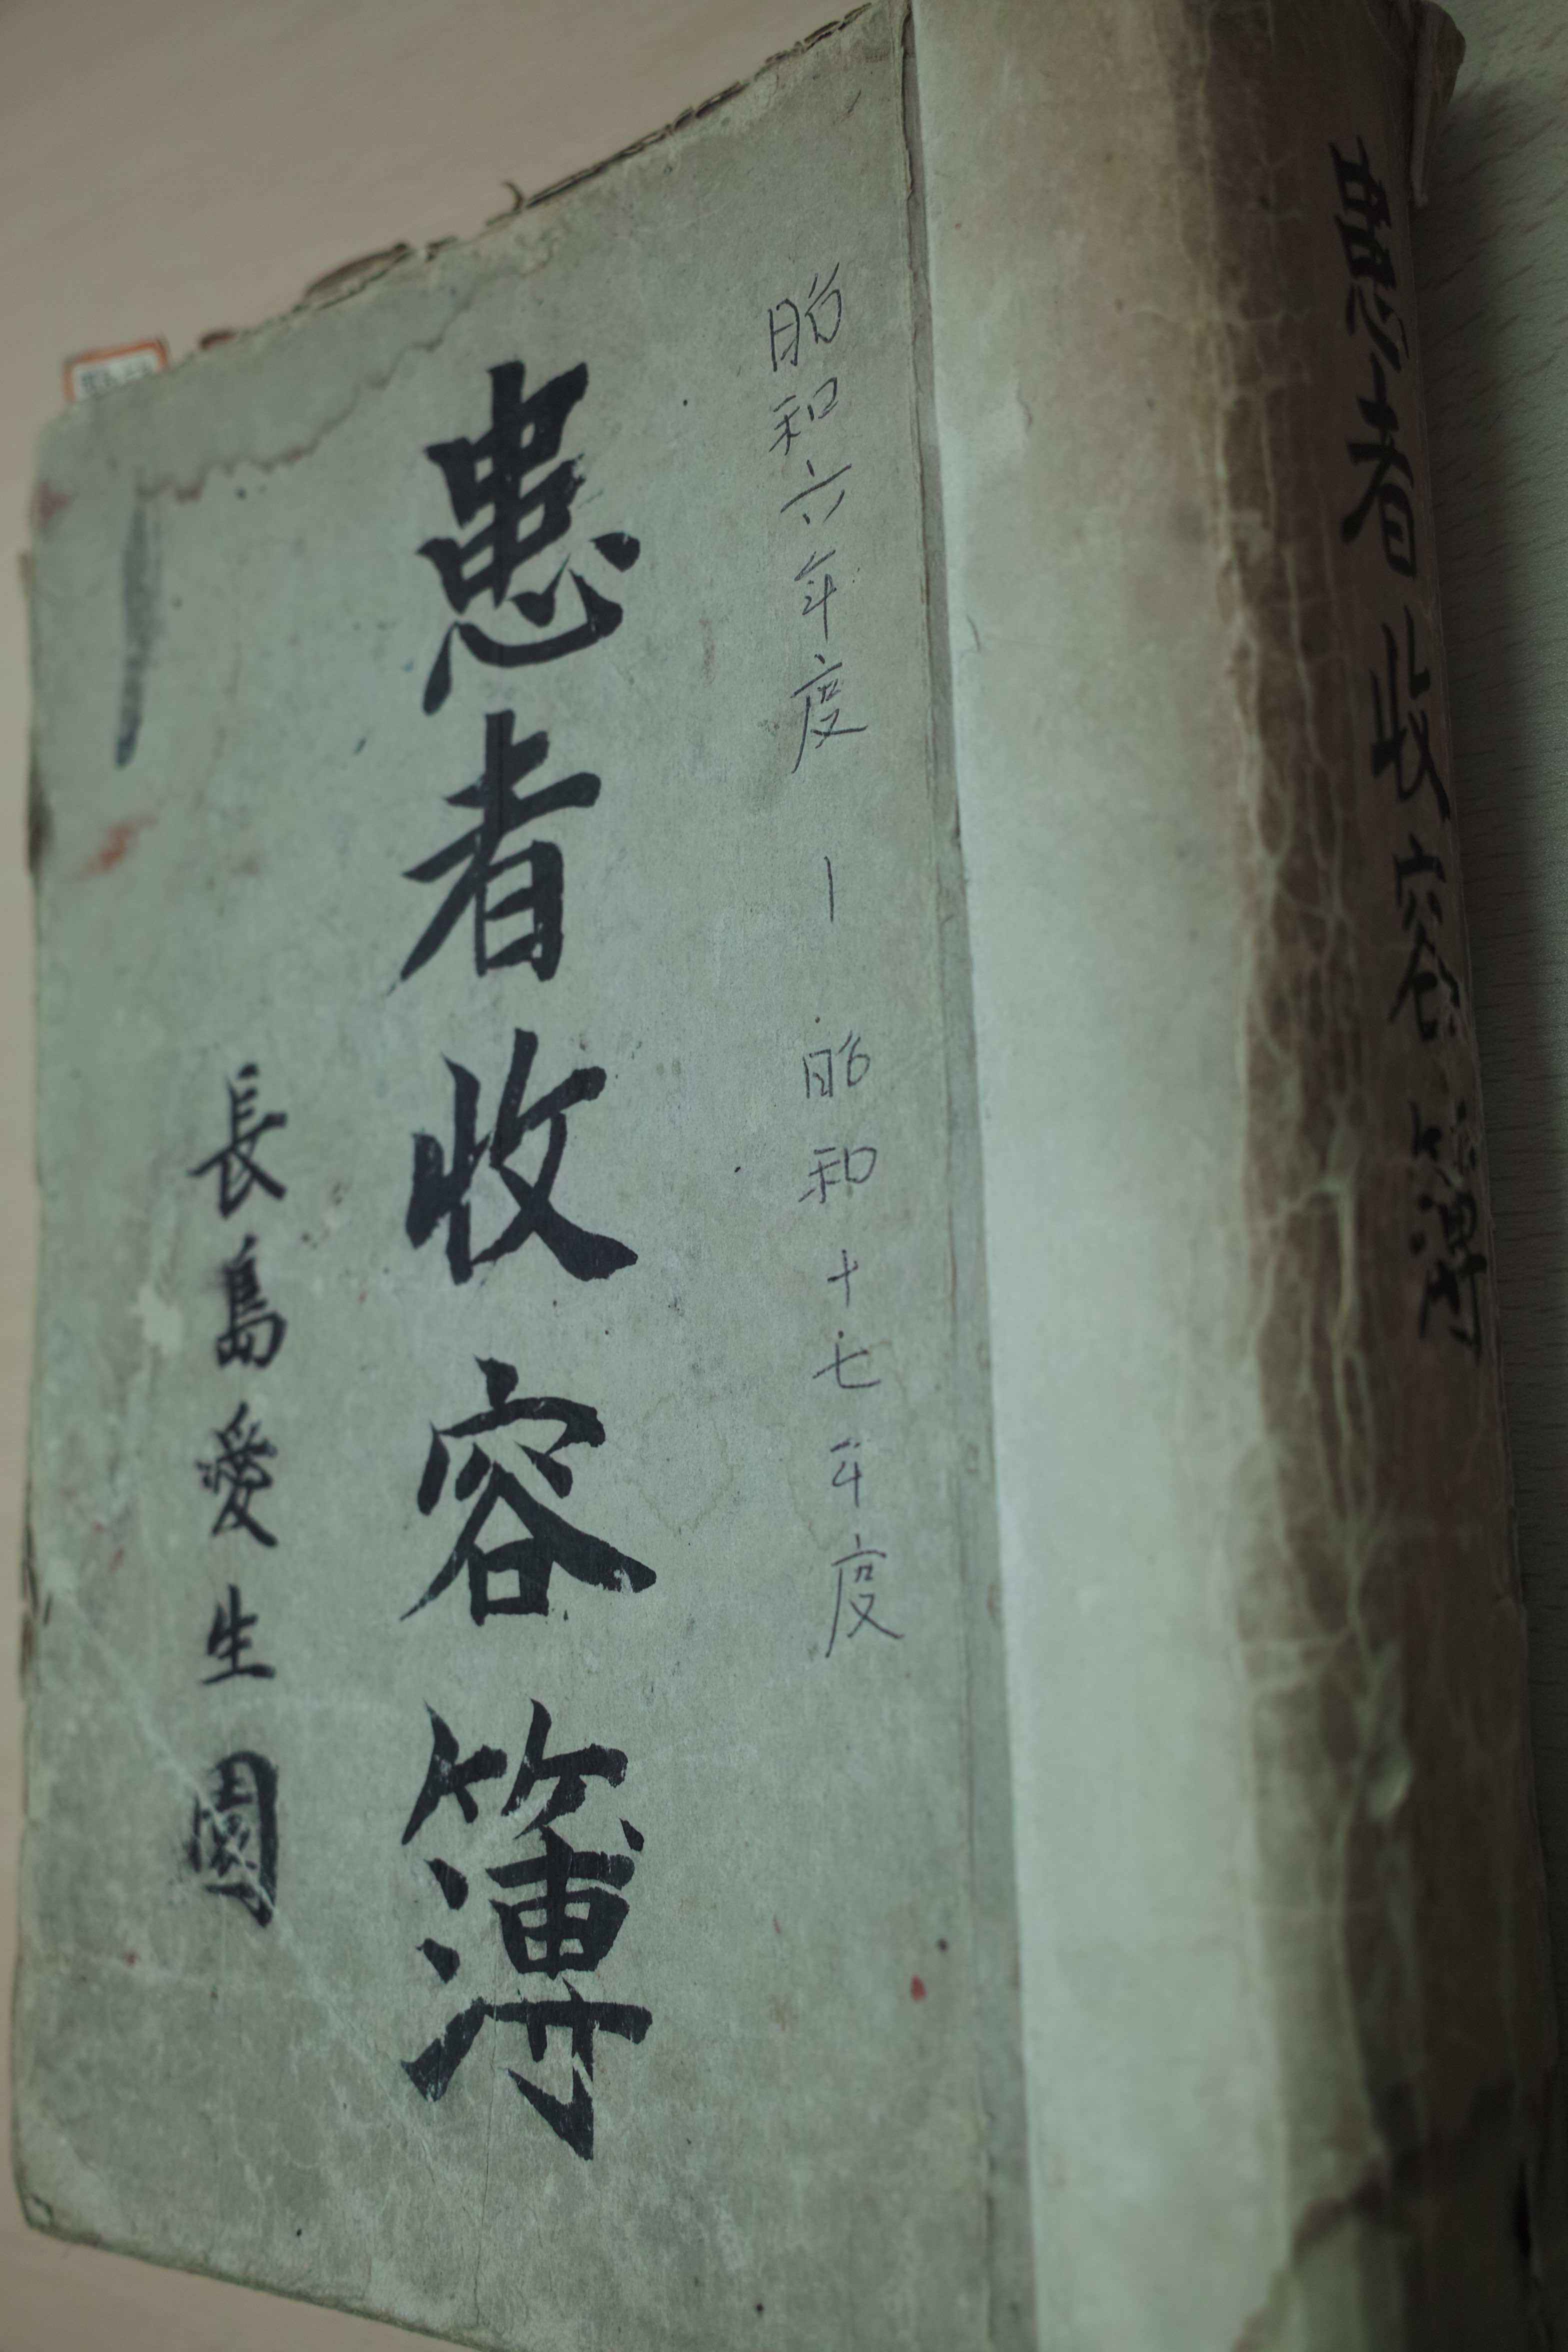 患者收容簿
昭和六年度ー昭和十七年度
患者收容簿
長島愛生園